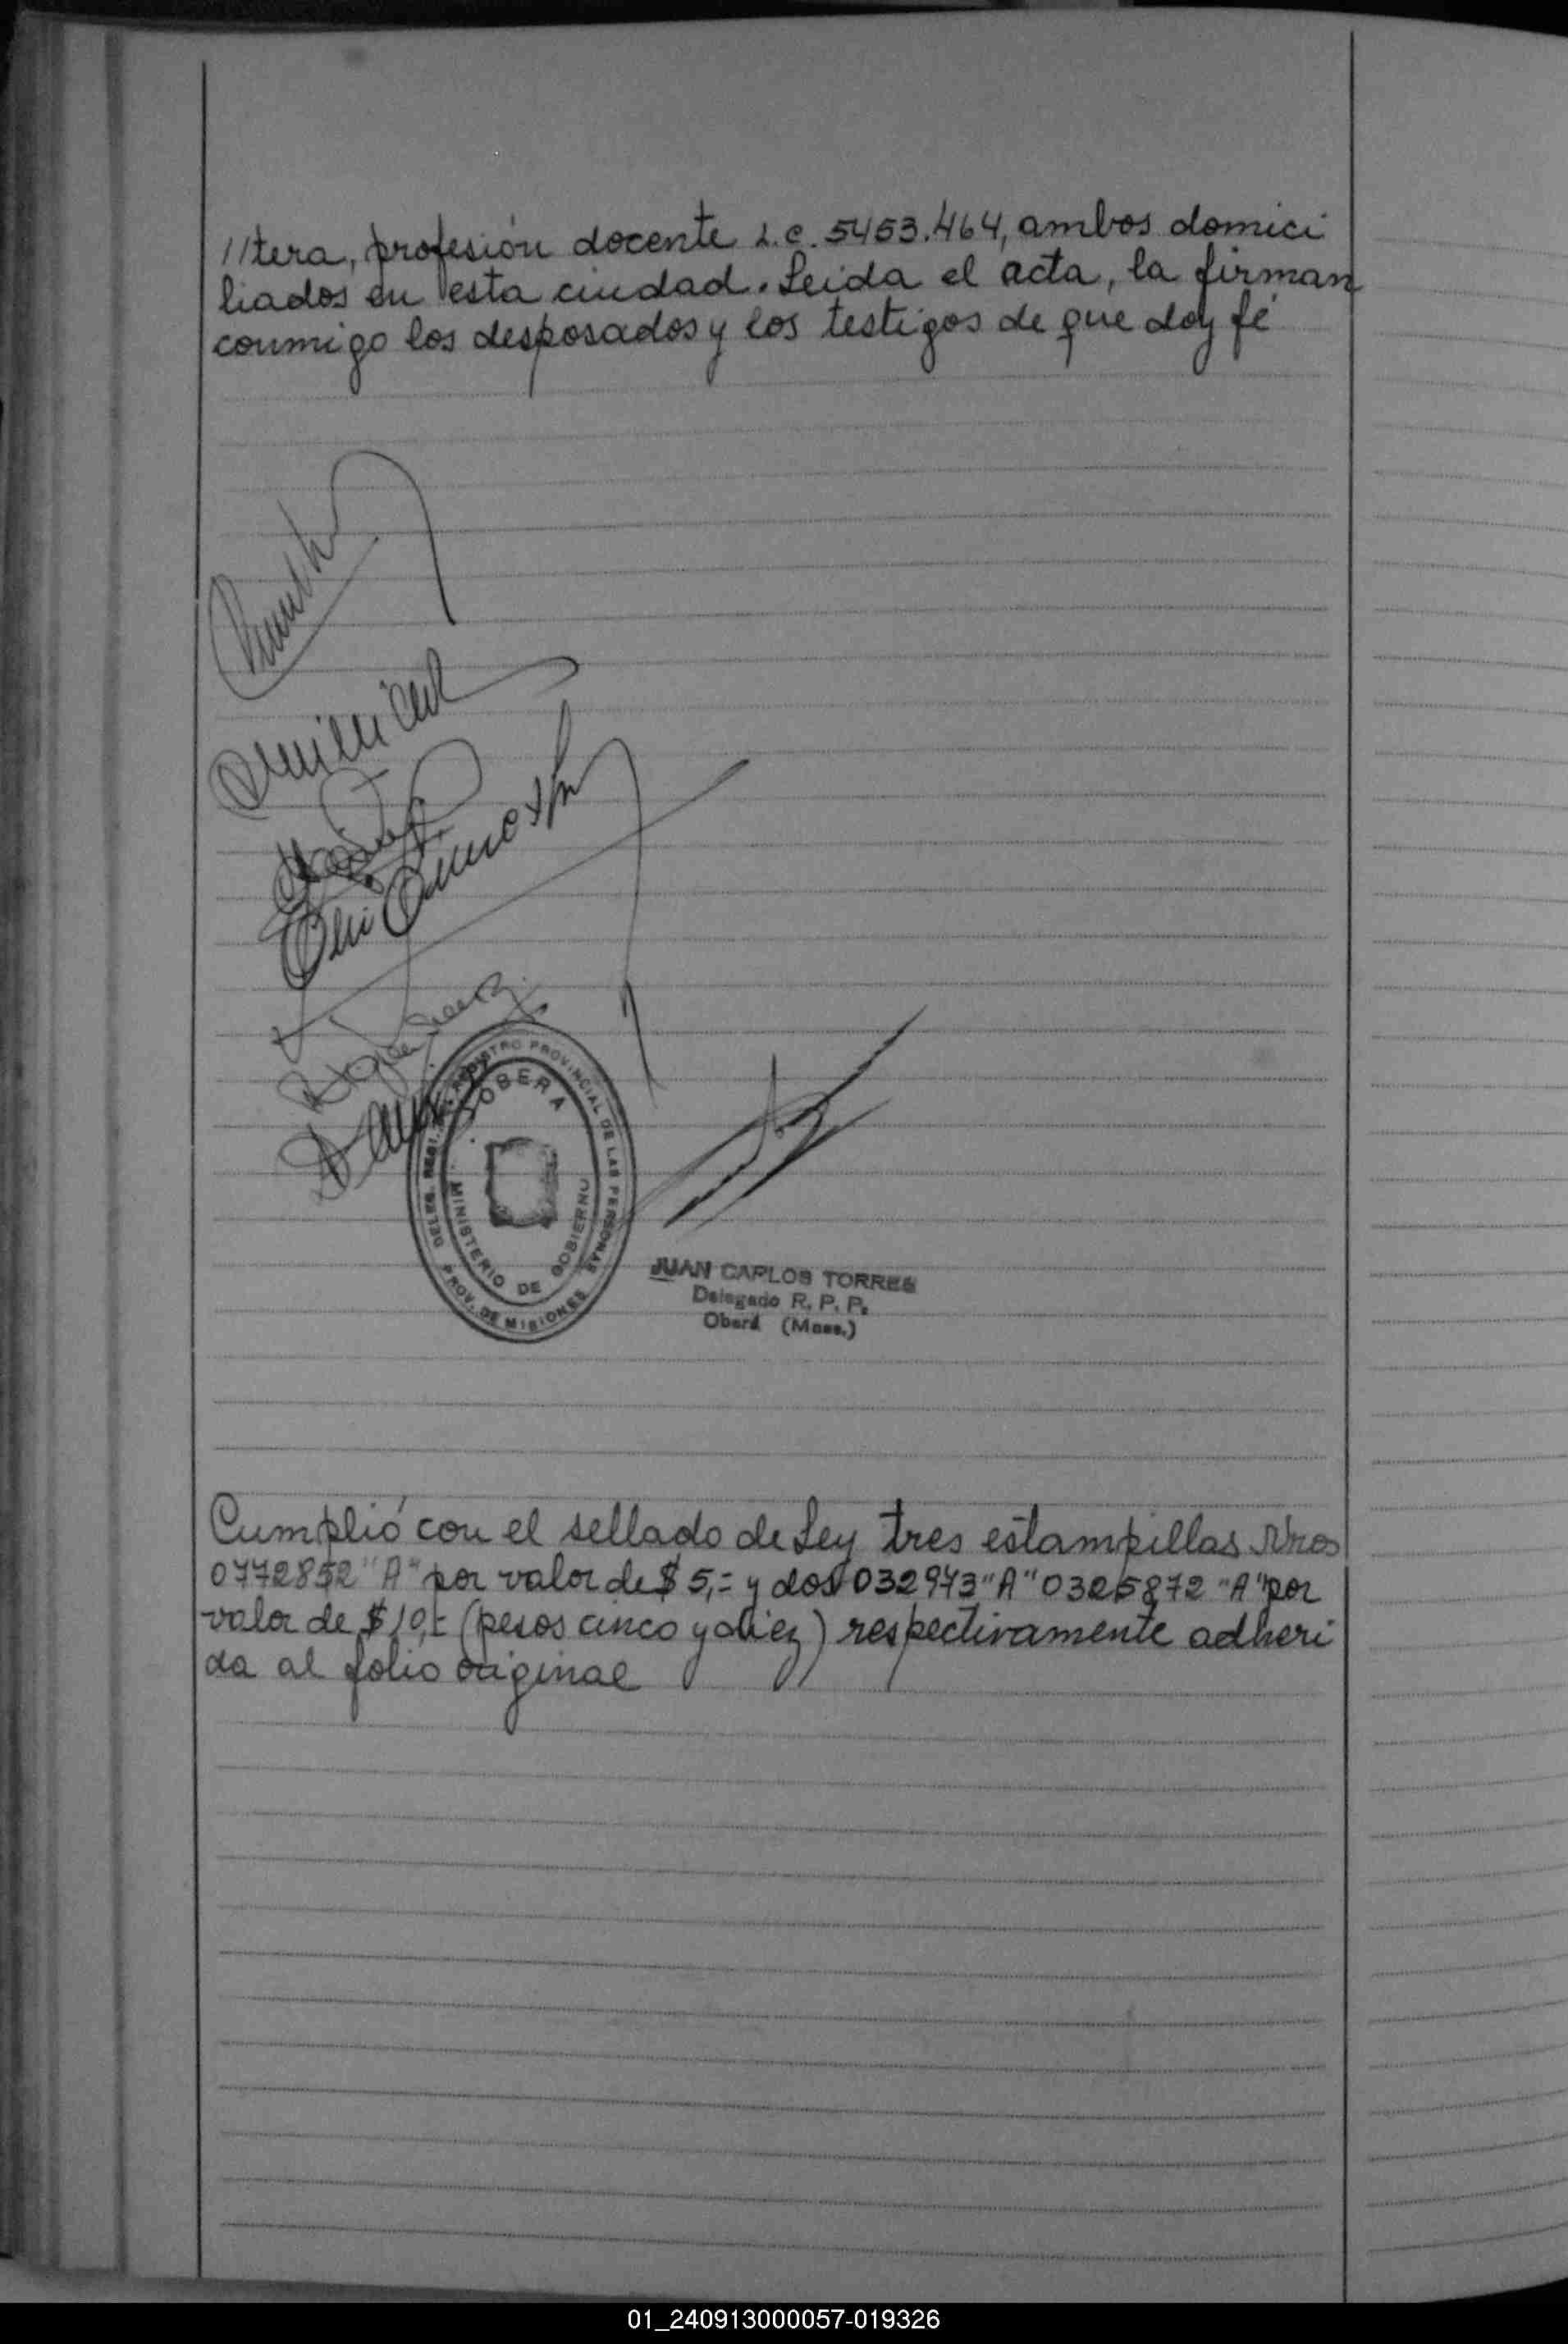 //tera, profesión docente L.C. 5453.464, ambos domici
liados en esta ciudad. Leida el acta, la firman
conmigo los desposados y los testigos de que doy fé
DELEG. REGI. REGISTRO PROVINCIAL DE LAS PERSONAS
OBERA
MINISTERIO DE GOBIERNO
PROV. DE MISIONES
JUAN CARLOS TORRES
Delegado R. P. P.
Oberá (Mnes.)
Cumplió con el sellado de Ley tres estampillas Nros
0772852 "A" por valor de $ 5,= y dos 032943 "A" 0325872 "A" por
valor de $ 10,= (pesos cinco y diez) respectivamente adheri
da al folio original
01_240913000057-019326